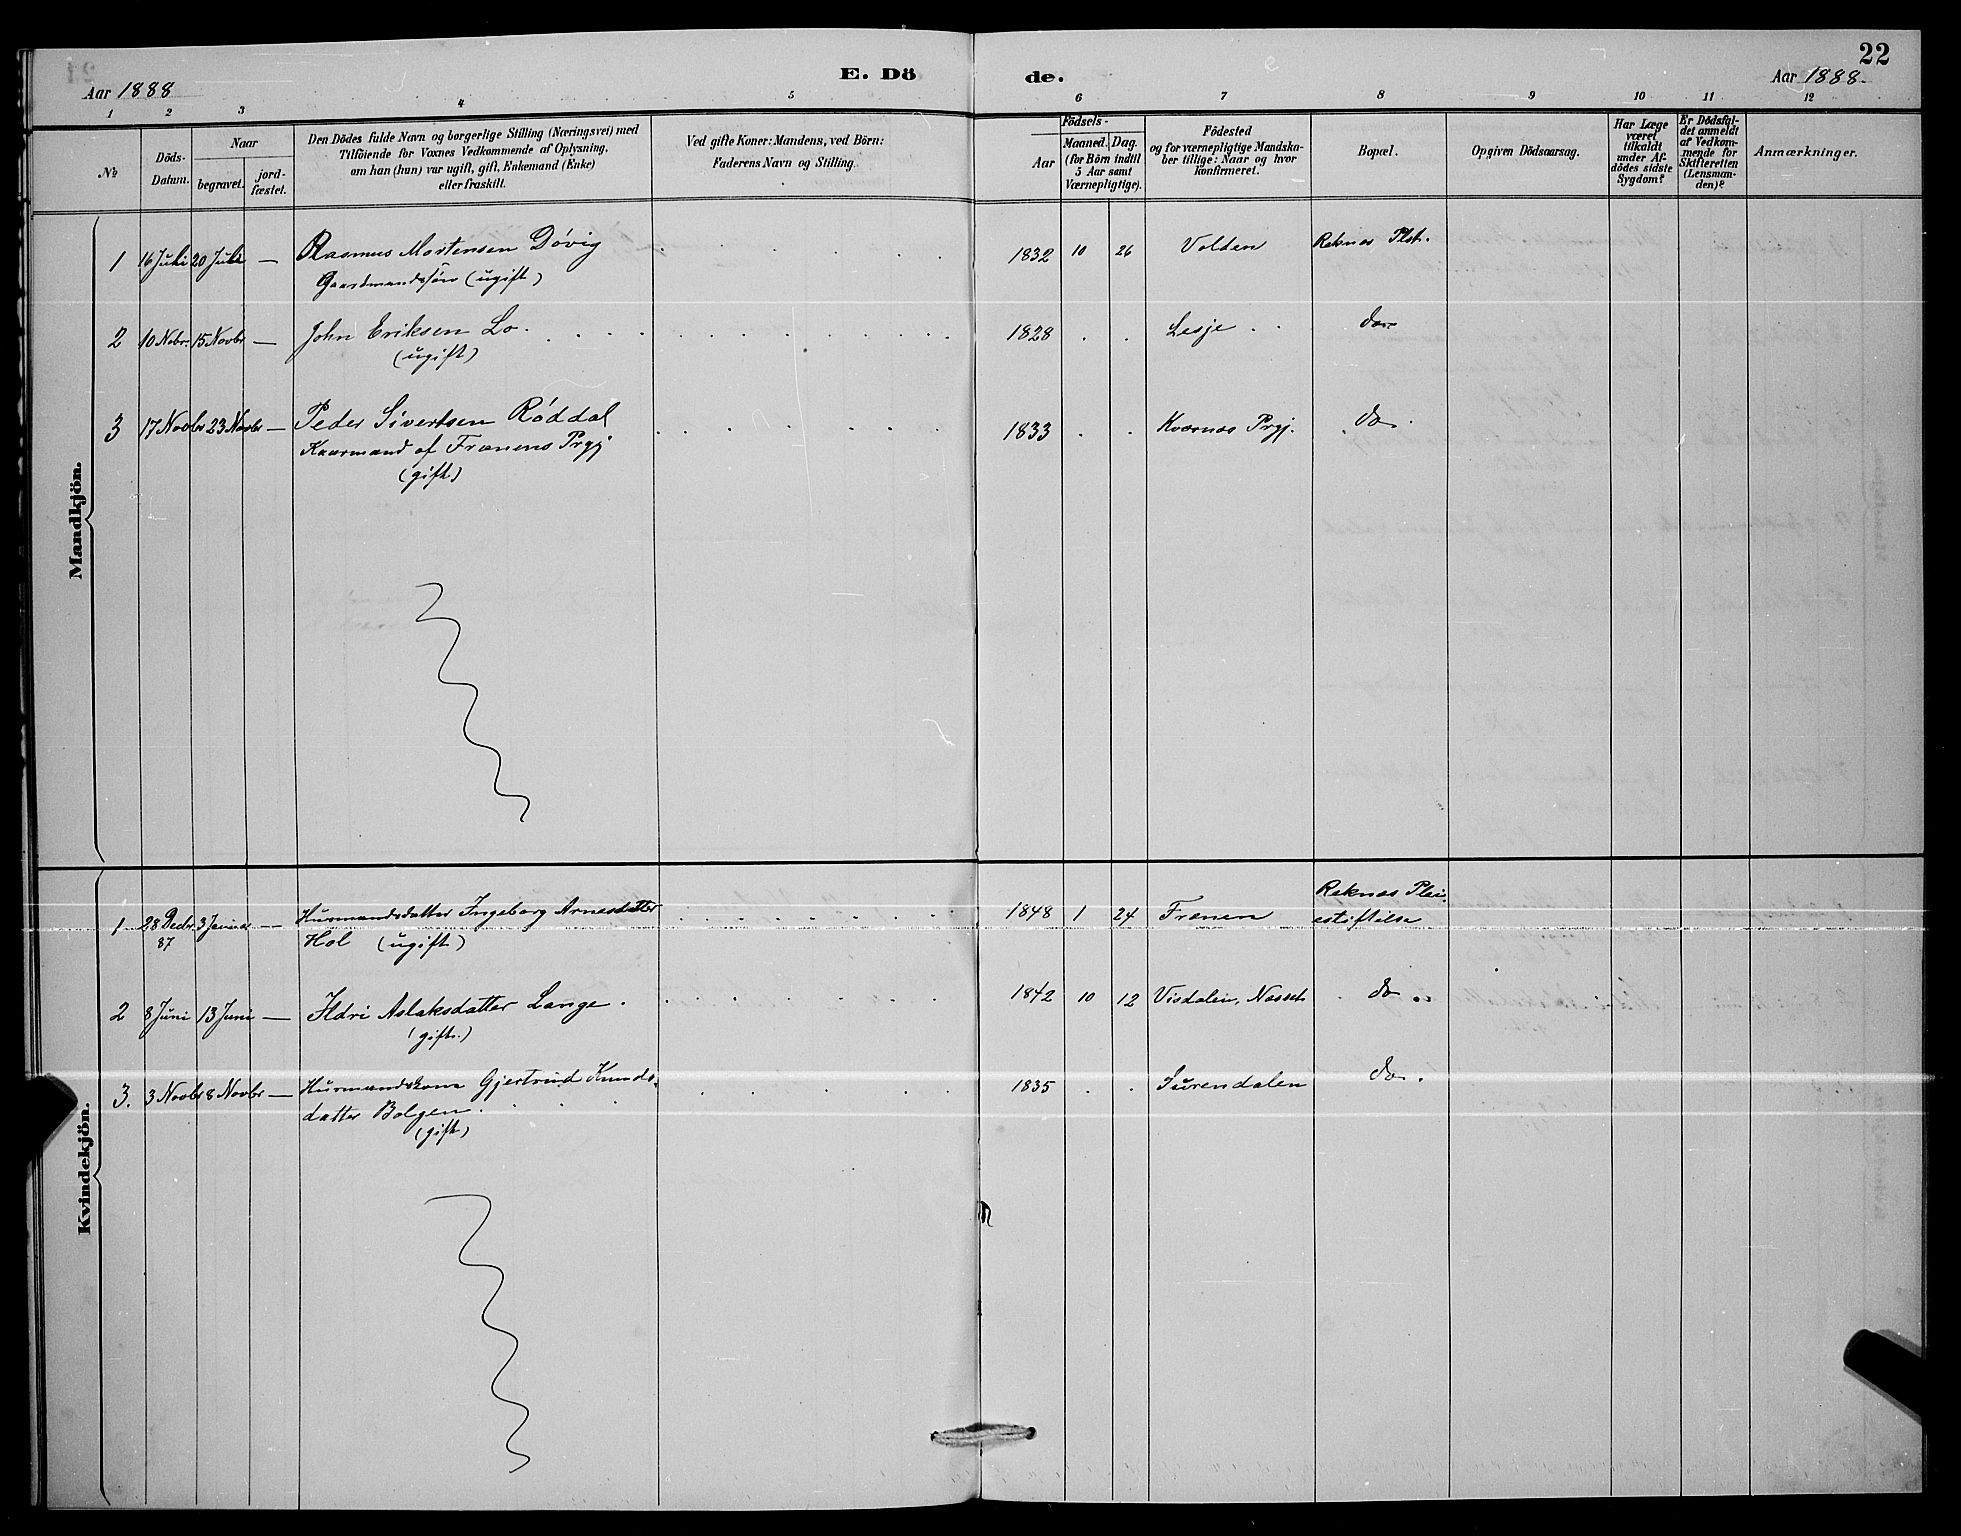 22
E. Dö de.
Aar 1888
Aar 1888
1 2 3 4 5 6 7 8 9 10 11 12
No
Döds-Datum.
Naar
begravet.
jord-fæstet.
Den Dödes fulde Navn og borgerlige Stilling (Næringsvei) med
Tilföiende for Voxnes Vedkommende af Oplysning,
om han (hun) var ugift, gift, Enkemand (Enke)
eller fraskilt.
Ved gifte Koner: Mandens, ved Börn:
Faderens Navn og Stilling.
Födsels-
Aar
Maaned. Dag.
(for Börn indtil
5 Aar samt
Værnepligtige).
Födested
og for værnepligtige Mandska-
ber tillige: Naar og hvor
konfirmeret.
Bopæl.
Opgiven Dödsaarsag.
Har Læge
været
tilkaldt
under Af-
dödes sidste
Sygdom?
Er Dödsfal-
det anmeldt
af Vedkom-
mende for
Skifteretten
(Lensman-
den)?
Anmærkninger.
Mandkjön.
1 16 Juli 20 Juli — Rasmus Mortensen Døvig 1832 10 26 Volden Reknes Plst.
Gaardmandssøn (ugift)
2 10 Nobr. 15 Novbr — John Eriksen Lo. 1828 Lesje do
(ugift)
3 17 Novbr 23 Novbr — Peder Sivertsen Røddal 1833 Kvernes Prgj. do
Kaarmand af Frænens Prgj
(gift)
Kvindekjön.
1 28 Decbr 3 Januar — Husmandsdatter Ingeborg Arnesdatter 1848 1 24 Frænen Reknes Plei-
87 Hol (ugift) estiftelse
2 8 Juni 13 Juni — Ildri Aslaksdatter Lange. 1842 10 12 Visdalen, Nesset do
(gift.)
3. 3 Novbr 8 Novbr — Husmandskone Gjertrud Knuds- 1835 Surendalen do.
datter Bolgen.
(gift)